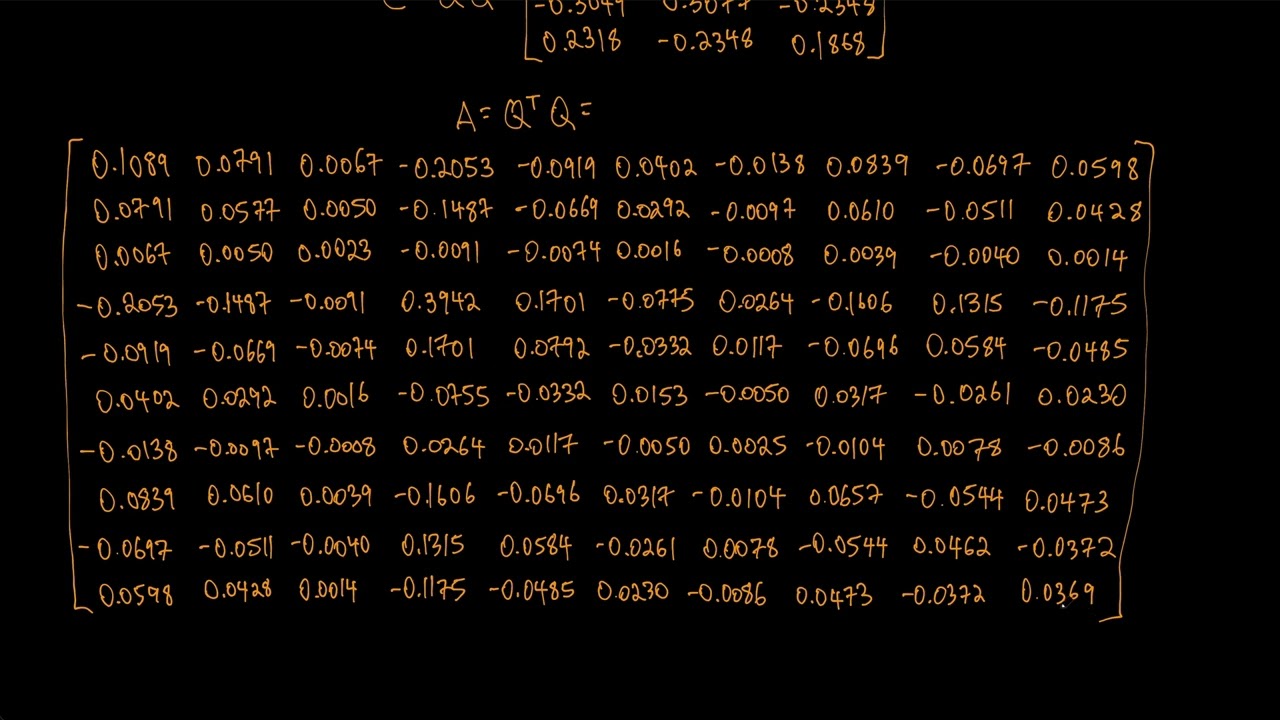 -0.3049 0.3077 -0.2348
0.2318 -0.2348 0.1868
A = Qᵀ Q =
0.1089 0.0791 0.0067 -0.2053 -0.0919 0.0402 -0.0138 0.0839 -0.0697 0.0598
0.0791 0.0577 0.0050 -0.1487 -0.0669 0.0292 -0.0097 0.0610 -0.0511 0.0428
0.0067 0.0050 0.0023 -0.0091 -0.0074 0.0016 -0.0008 0.0039 -0.0040 0.0014
-0.2053 -0.1487 -0.0091 0.3942 0.1701 -0.0775 0.0264 -0.1606 0.1315 -0.1175
-0.0919 -0.0669 -0.0074 0.1701 0.0792 -0.0332 0.0117 -0.0696 0.0584 -0.0485
0.0402 0.0292 0.0016 -0.0755 -0.0332 0.0153 -0.0050 0.0317 -0.0261 0.0230
-0.0138 -0.0097 -0.0008 0.0264 0.0117 -0.0050 0.0025 -0.0104 0.0078 -0.0086
0.0839 0.0610 0.0039 -0.1606 -0.0696 0.0317 -0.0104 0.0657 -0.0544 0.0473
-0.0697 -0.0511 -0.0040 0.1315 0.0584 -0.0261 0.0078 -0.0544 0.0462 -0.0372
0.0598 0.0428 0.0014 -0.1175 -0.0485 0.0230 -0.0086 0.0473 -0.0372 0.0369